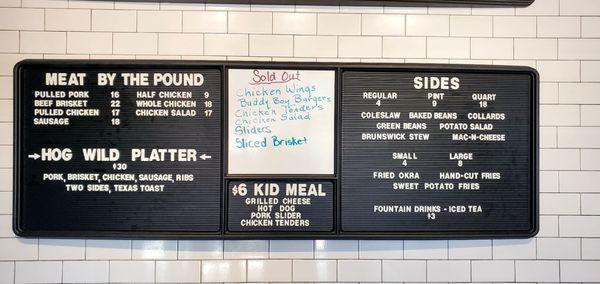 MEAT BY THE POUND
PULLED PORK 16
BEEF BRISKET 22
PULLED CHICKEN 17
SAUSAGE 18
HALF CHICKEN 9
WHOLE CHICKEN 18
CHICKEN SALAD 17
HOG WILD PLATTER
$30
PORK, BRISKET, CHICKEN, SAUSAGE, RIBS
TWO SIDES, TEXAS TOAST
Sold Out
Chicken Wings
Buddy Boy Bargers
Chicken Tenders
Chicken Salad
Sliders
Sliced Brisket
$6 KID MEAL
GRILLED CHEESE
HOT DOG
PORK SLIDER
CHICKEN TENDERS
SIDES
REGULAR PINT QUART
4 9 18
COLESLAW BAKED BEANS COLLARDS
GREEN BEANS POTATO SALAD
BRUNSWICK STEW MAC-N-CHEESE
SMALL LARGE
4 8
FRIED OKRA HAND-CUT FRIES
SWEET POTATO FRIES
FOUNTAIN DRINKS - ICED TEA
$3